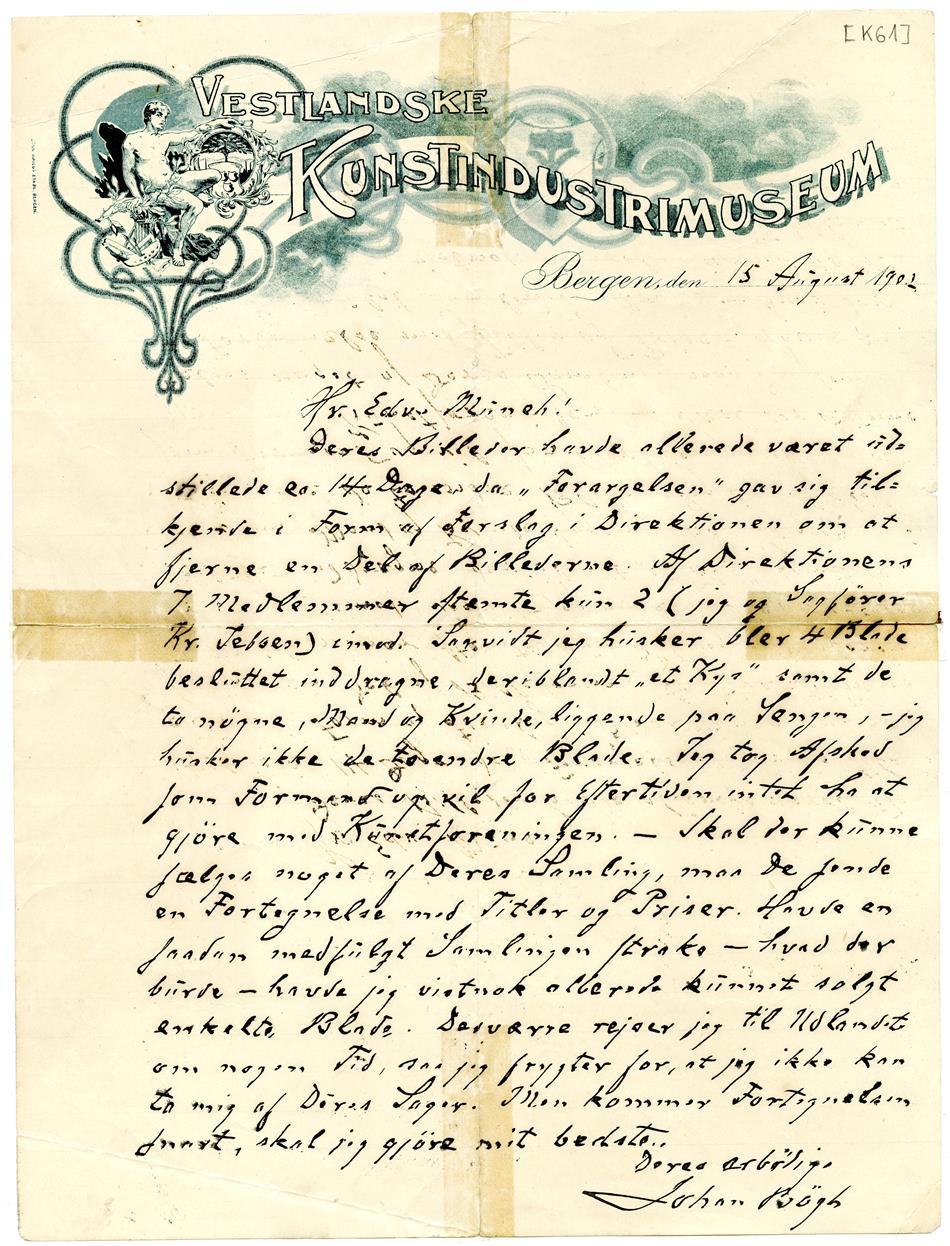 [K61]
VESTLANDSKE
KUNSTINDUSTRIMUSEUM
Bergen, den 15 August 1902
Hr. Edv. Munch!
Deres Billeder havde allerede været ud-
stillede ca. 14 Dage da „Forargelsen" gav sig til-
kjende i Form af Forslag i Direktionen om at
fjerne en Del af Billederne. Af Direktionens
7 Medlemmer stemte kun 2 (jeg og Sagförer
Kr. Jebsen) imod. Saavidt jeg husker blev 4 Blade
besluttet inddragne, deriblandt „et Kys" samt de
to nögne, Mand og Kvinde, liggende paa Sengen, – jeg
husker ikke de to andre Blade. Jeg tog Afsked
som Formand og vil for Eftertiden intet ha at
gjöre med Kunstforeningen. – Skal der kunne
sælges noget af Deres Samling, maa De sende
en Fortegnelse med Titler og Priser. Havde en
saadan medfulgt Samlingen straks – hvad der
burde – havde jeg vistnok allerede kunnet solgt
enkelte Blade. Desværre rejser jeg til Udlandet
om nogen Tid, saa jeg frygter for, at jeg ikke kan
ta mig af Deres Sager. Men kommer Fortegnelsen
snart, skal jeg gjöre mit bedste.
Deres ærbödige
Johan Bögh